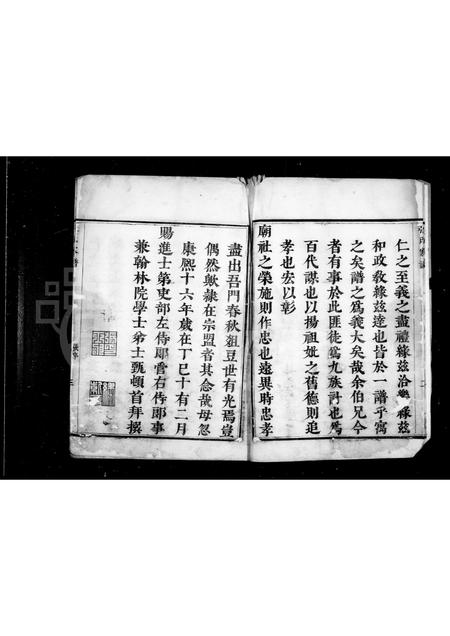 仁之至義之盡禮緣茲洽樂緣茲
和政敎緣茲達也皆於一譜乎寓
之矣譜之爲義大矣哉余伯兄今
者有事於此匪徒爲九族計也爲
百代謀也以揚祖妣之舊德則追
孝也宏以彰
廟社之榮施則作忠也遠異時忠孝
盡出吾門春秋俎豆世有光焉豈
偶然歟隸在宗盟者其念哉毋忽
康熙十六年歲在丁巳十有二月
賜進士第吏部左侍郎管右侍郎事
兼翰林院學士弟士甄頓首拜撰